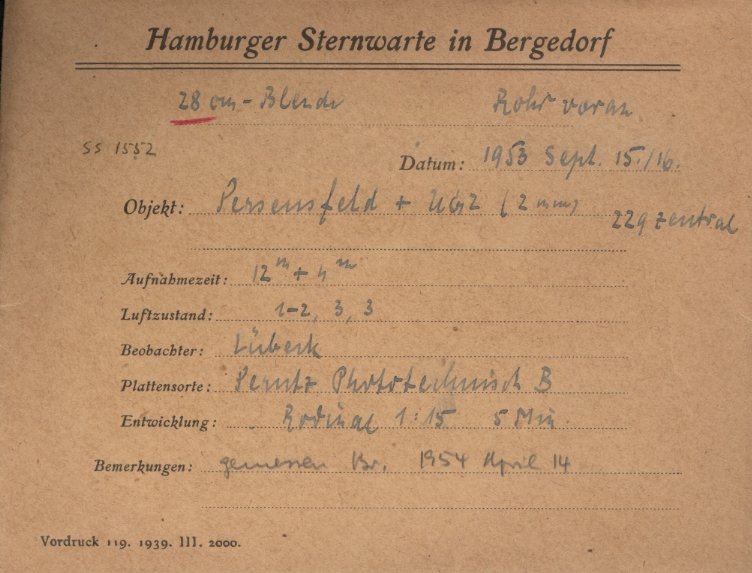 Hamburger Sternwarte in Bergedorf
28 cm-Blende Rohr voran
SS 1552
Datum: 1953 Sept. 15./16.
Objekt: Perseusfeld + (2 mm) 229 zentral
Aufnahmezeit: 12ᵐ + 4ᵐ
Luftzustand: 1-2, 3, 3
Beobachter: Lübeck
Plattensorte: Perutz Phototechnisch B
Entwicklung: Rodinal 1:15 5 Min.
Bemerkungen: gemessen Br. 1954 April 14
Vordruck 119. 1939. III. 2000.